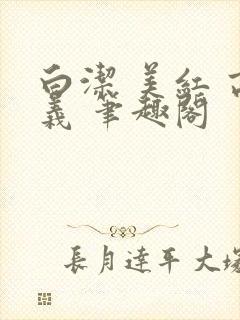 白潔 美紅 
義 筆趣閣
長月達平 大塚